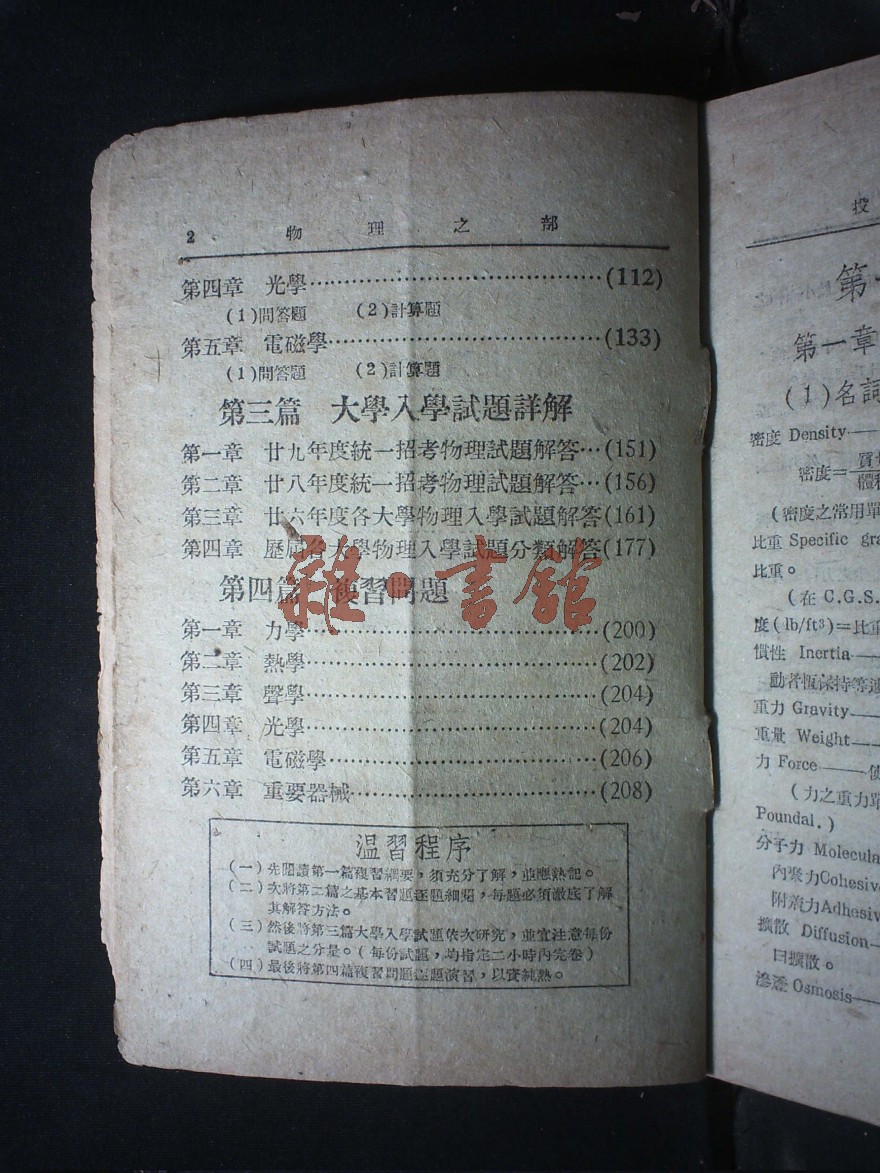 2 物理之部
第四章 光學……………………………(112)
(1)問答題 (2)計算題
第五章 電磁學…………………………(133)
(1)問答題 (2)計算題
第三篇 大學入學試題詳解
第一章 廿九年度統一招考物理試題解答…(151)
第二章 廿八年度統一招考物理試題解答…(156)
第三章 廿六年度各大學物理入學試題解答(161)
第四章 歷屆各大學物理入學試題分類解答(177)
第四篇 複習問題
雜·書館
第一章 力學……………………………(200)
第二章 熱學……………………………(202)
第三章 聲學……………………………(204)
第四章 光學……………………………(204)
第五章 電磁學…………………………(206)
第六章 重要器械………………………(208)
温習程序
(一)先閱讀第一篇複習綱要,須充分了解,並應熟記。
(二)次將第二篇之基本習題逐題細閱,每題必須澈底了解
其解答方法。
(三)然後將第三篇大學入學試題依次研究,並宜注意每份
試題之分量。(每份試題,均指定二小時內完卷)
(四)最後將第四篇複習問題逐題演習,以資純熟。
投
第一
第一章
(1)名詞
密度 Density——
密度=
比重 Specific gra
比重。
(在 C.G.S.
度(lb/ft³)=比重
慣性 Inertia——
動者恆保持等速
重力 Gravity——
重量 Weight——
力 Force——
(力之重力單
Poundal.)
分子力 Molecula
內聚力Cohesive
附着力Adhesive
擴散 Diffusion——
曰擴散。
滲透 Osmosis——